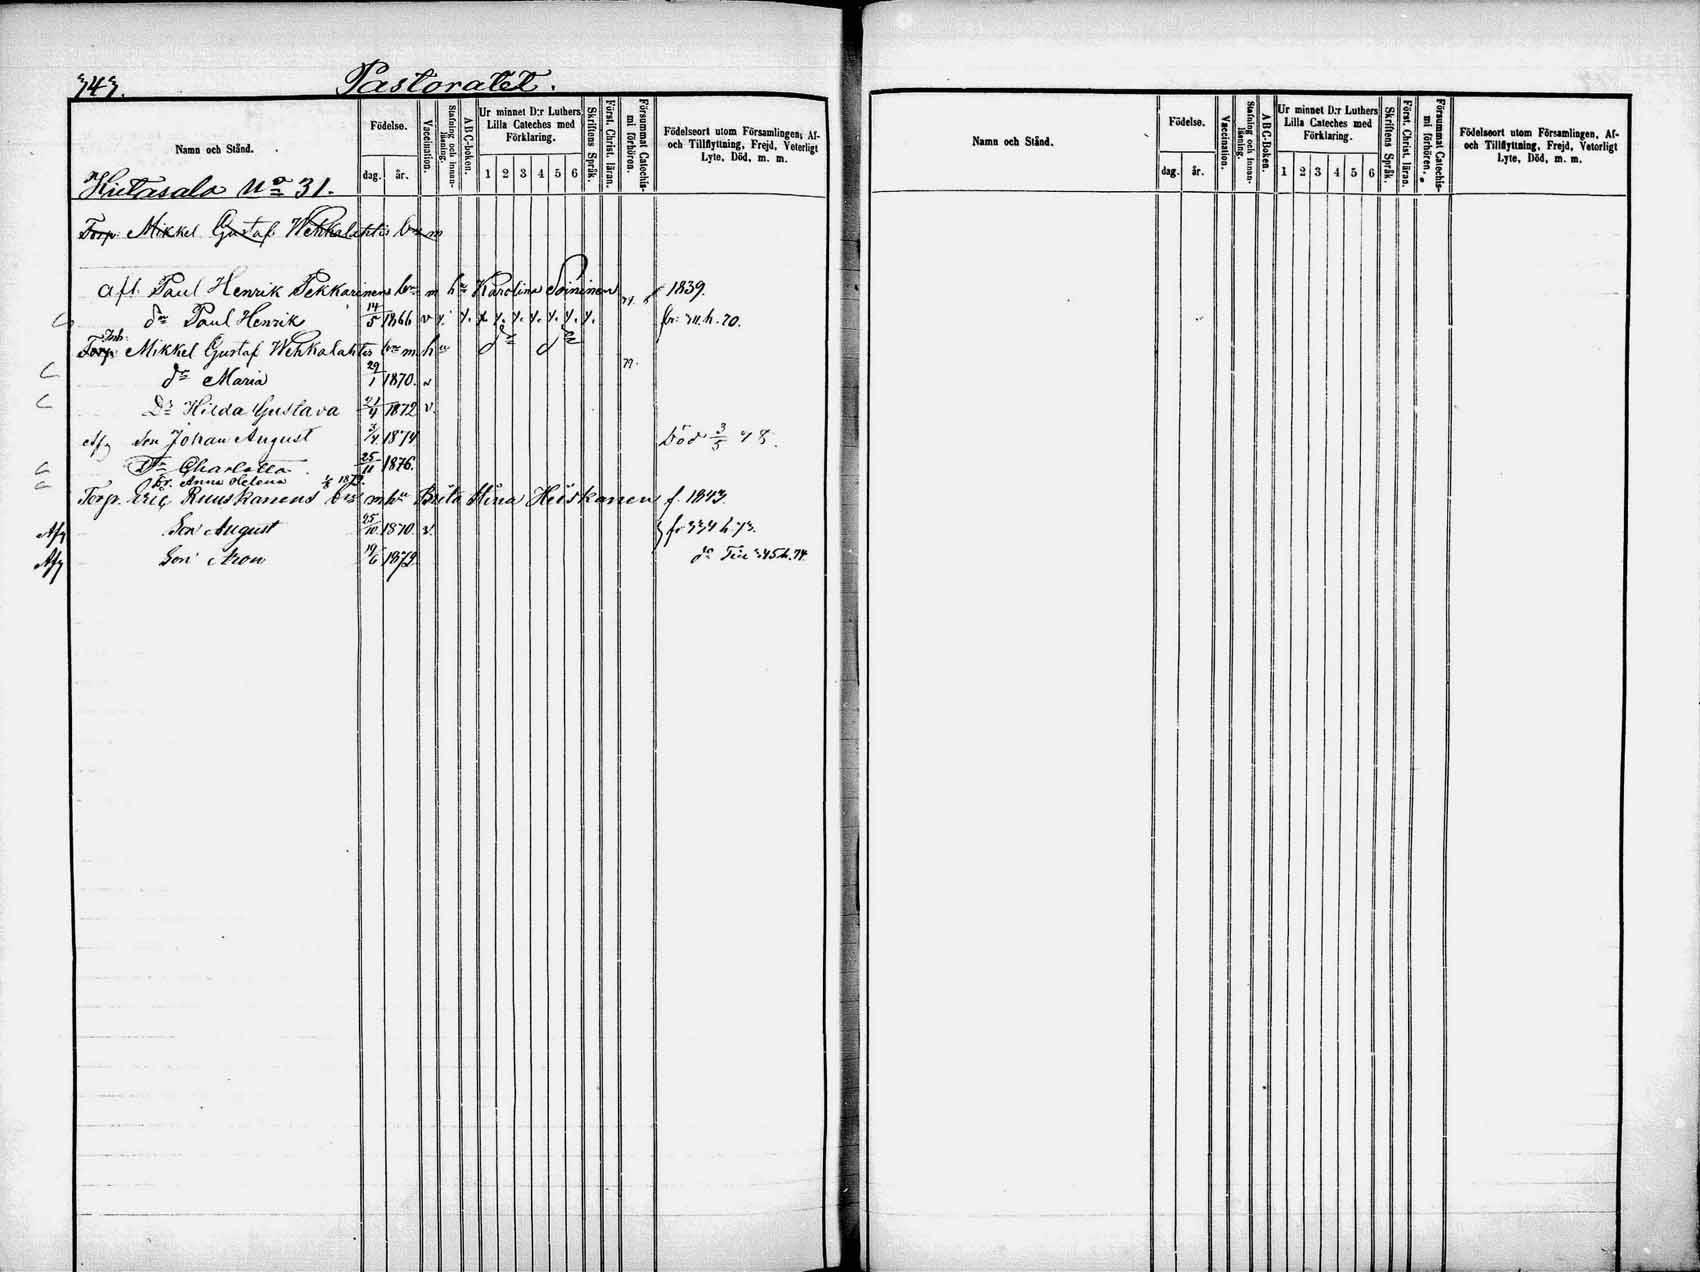 343. Pastoratet.
Namn och Stånd.
Födelse.
dag. år.
Vaccination.
Stafning och innan-läsning.
ABC-boken.
Ur minnet D:r Luthers Lilla Cateches med Förklaring.
1 2 3 4 5 6
Skriftens Språk.
Först. Christ. läran.
Försummat Catechis-mi förhören.
Födelseort utom Församlingen, Af- och Tillflyttning, Frejd, Veterligt Lyte, Död, m. m.
Hietasalo No 31.
Torp. Mikkel Gustaf Wehkalahtis m
afl. Paul Henrik Pekkarinens m hu Karolina Soininen 1839.
Paul Henrik 14/5 1866 v y. y. y. y. y. y. y. y. fr. 311. h. 70.
Inh.
Torp. Mikkel Gustaf Wehkalahtis m. hu
Maria 29/1 1870. v
Dr Hilda Gustava 21/4 1872 v.
Son Johan August 3/4 1874 Död 3/5 78.
Dr Charlotta 25/11 1876.
Dr. Anna Helena
Torp. Eric Ruuskanens m hu Brita Stina Heiskanen f. 1843.
Afg Son August 25/10 1870 v. fr 334 h. 73.
Afg Son Aron 19/6 1872 do Till 345 h. 74.
Namn och Stånd.
Födelse.
dag. år.
Vaccination.
Stafning och innan-läsning.
ABC-Boken.
Ur minnet D:r Luthers Lilla Cateches med Förklaring.
1 2 3 4 5 6
Skriftens Språk.
Först. Christ. läran.
Försummat Catechis-mi förhören.
Födelseort utom Församlingen, Af- och Tillflyttning, Frejd, Veterligt Lyte, Död, m. m.